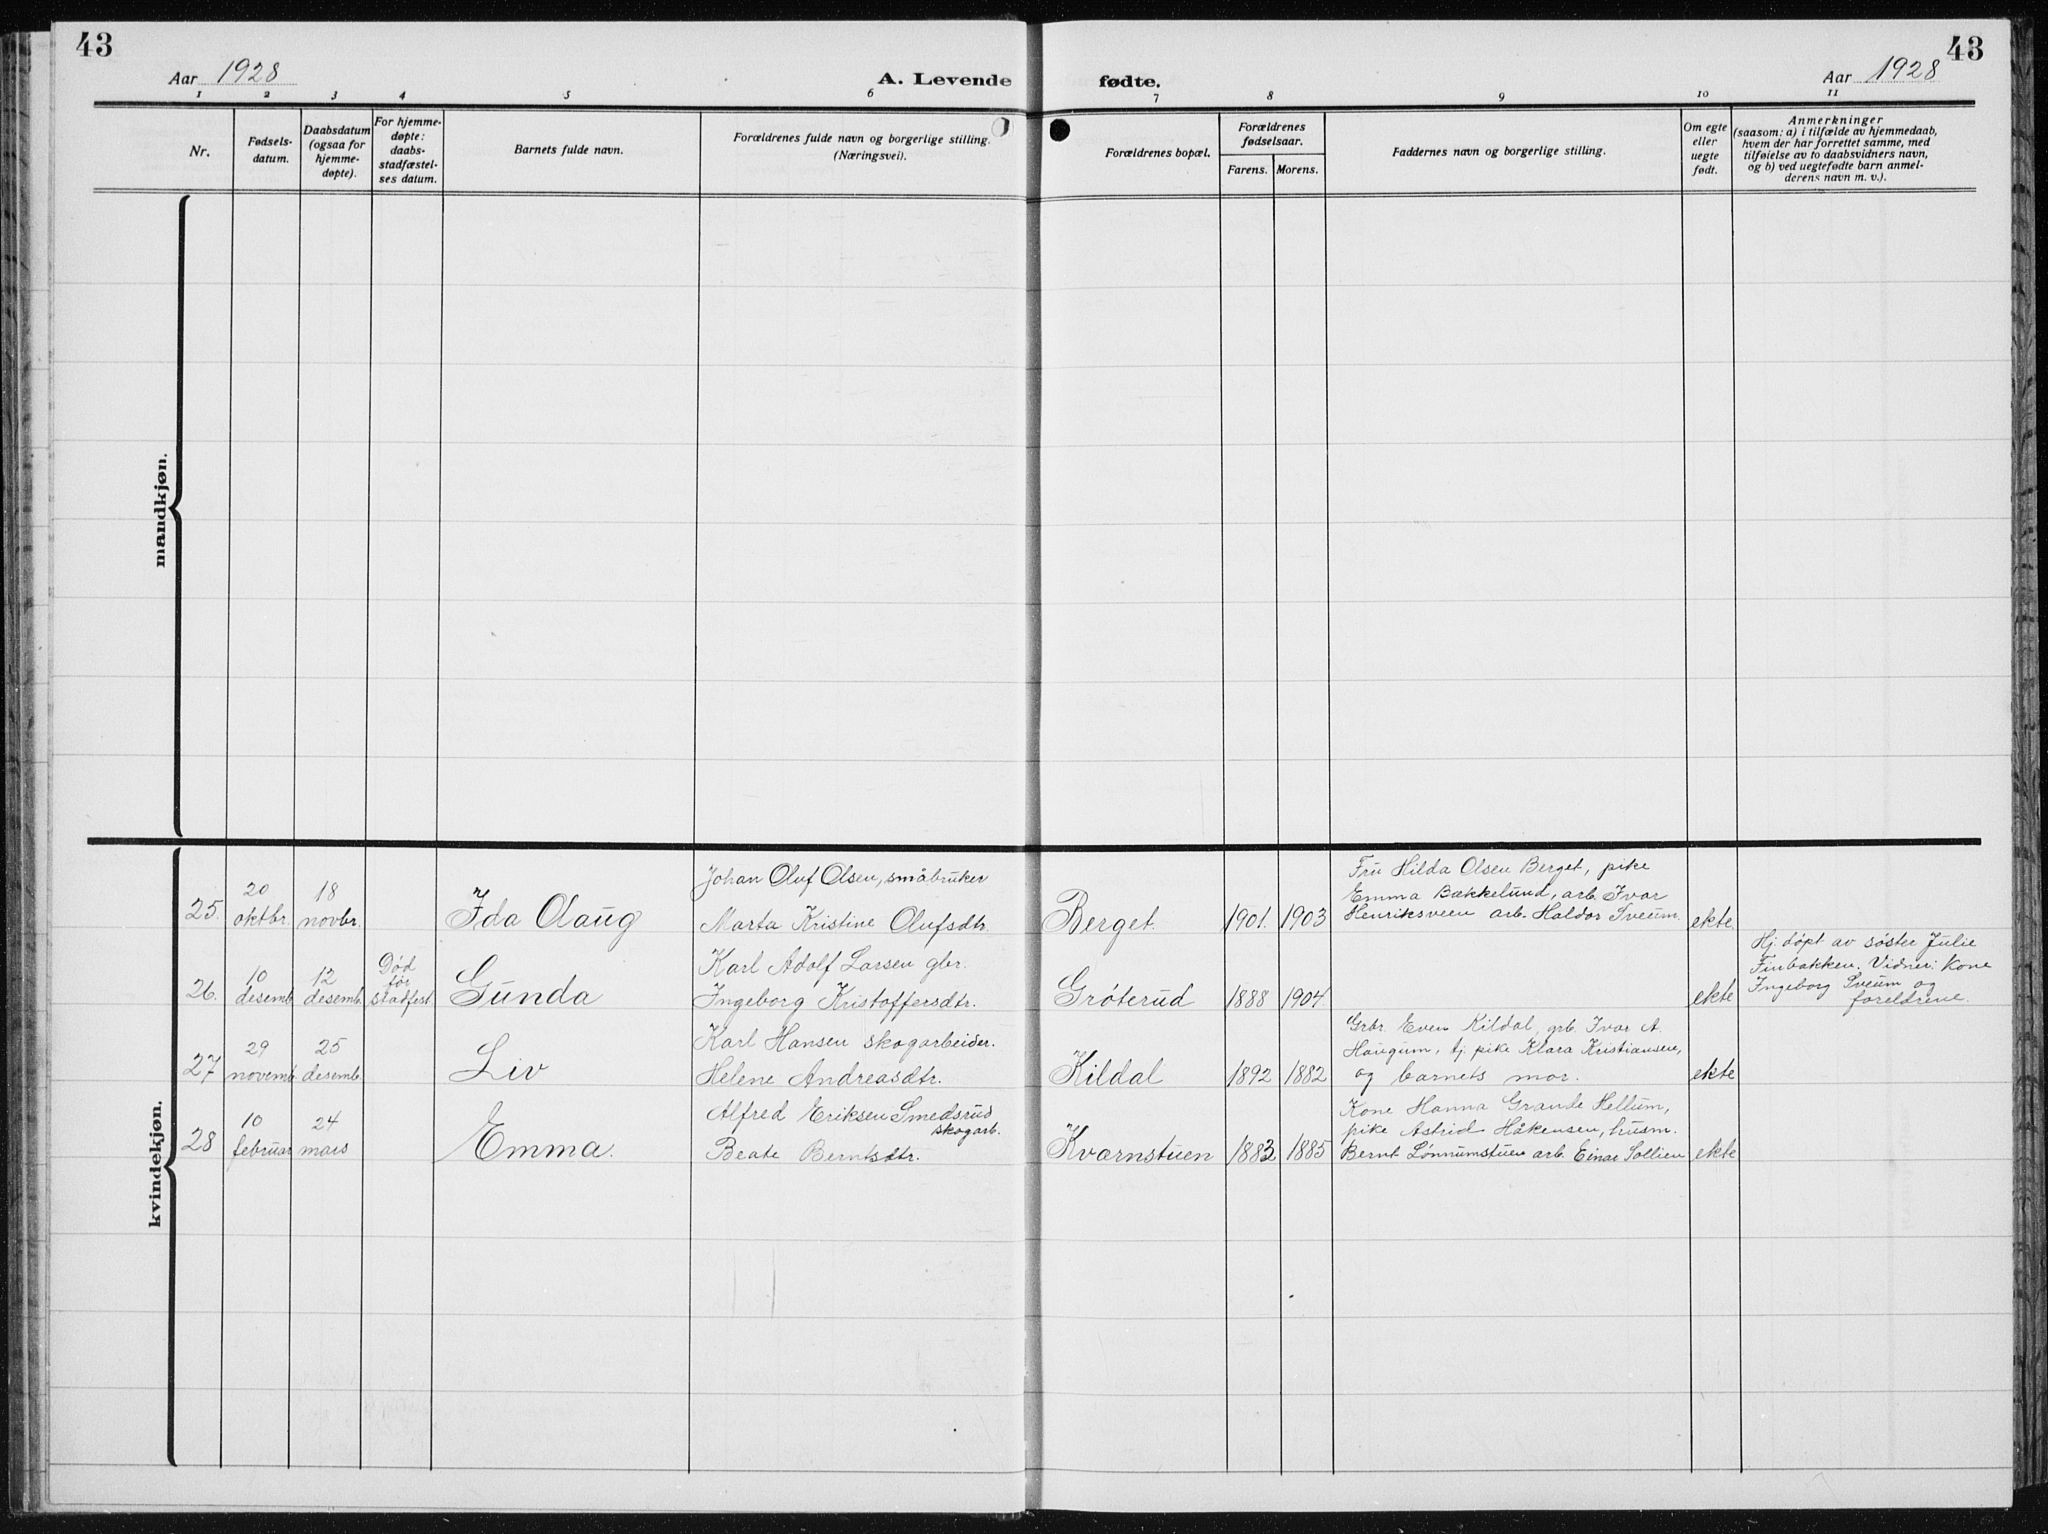 43
Aar 1928
A. Levende
fødte.
Aar 1928
43
1 2 3 4 5 6 7 8 9 10 11
Nr.
Fødsels-
datum.
Daabsdatum
(ogsaa for
hjemme-
døpte).
For hjemme-
døpte:
daabs-
stadfæstel-
ses datum.
Barnets fulde navn.
Forældrenes fulde navn og borgerlige stilling.
(Næringsvei).
Forældrenes bopæl.
Forældrenes
fødselsaar.
Farens. Morens.
Faddernes navn og borgerlige stilling.
Om egte
eller
uegte
født.
Anmerkninger
(saasom: a) i tilfælde av hjemmedaab,
hvem der har forrettet samme, med
tilføielse av to daabsvidners navn,
og b) ved uegtefødte barn anmel-
derens navn m. v.).
mandkjøn.
kvindekjøn.
25.
20
oktbr.
18
novbr.
Ida Olaug
Johan Oluf Olsen, småbruker
Marta Kristine Olufsdtr.
Berget.
1901. 1903
Fru Hilda Olsen Berget, pike
Emma Bækkelund, arb. Ivar
Henriksveen arb. Haldor Sveum.
ekte
26.
10
desemb.
12
desemb.
Død
før
stadfest
Gunda
Karl Adolf Larsen gbr.
Ingeborg Kristoffersdtr.
Grøterud
1888 1904.
ekte
Hj. døpt av søster Julie
Finbakken. Vidner: Kone
Ingeborg Sveum og
foreldrene.
27
29
novemb.
25
desemb.
Liv
Karl Hansen skogarbeider.
Helene Andreasdtr.
Kildal
1892 1882
Grbr. Even Kildal, grb. Ivar A.
Haugum, tj. pike Klara Kristiansen,
og barnets mor.
ekte
28
10
februar
24
mars
Emma.
Alfred Eriksen Smedsrud
skogarb.
Beate Berntsdtr.
Kvarnstuen
1883 1885
Kone Hanna Grande Hellum,
pike Astrid Håkensen, husm.
Bernt Lønnumstuen arb. Einar Sollien
ekte